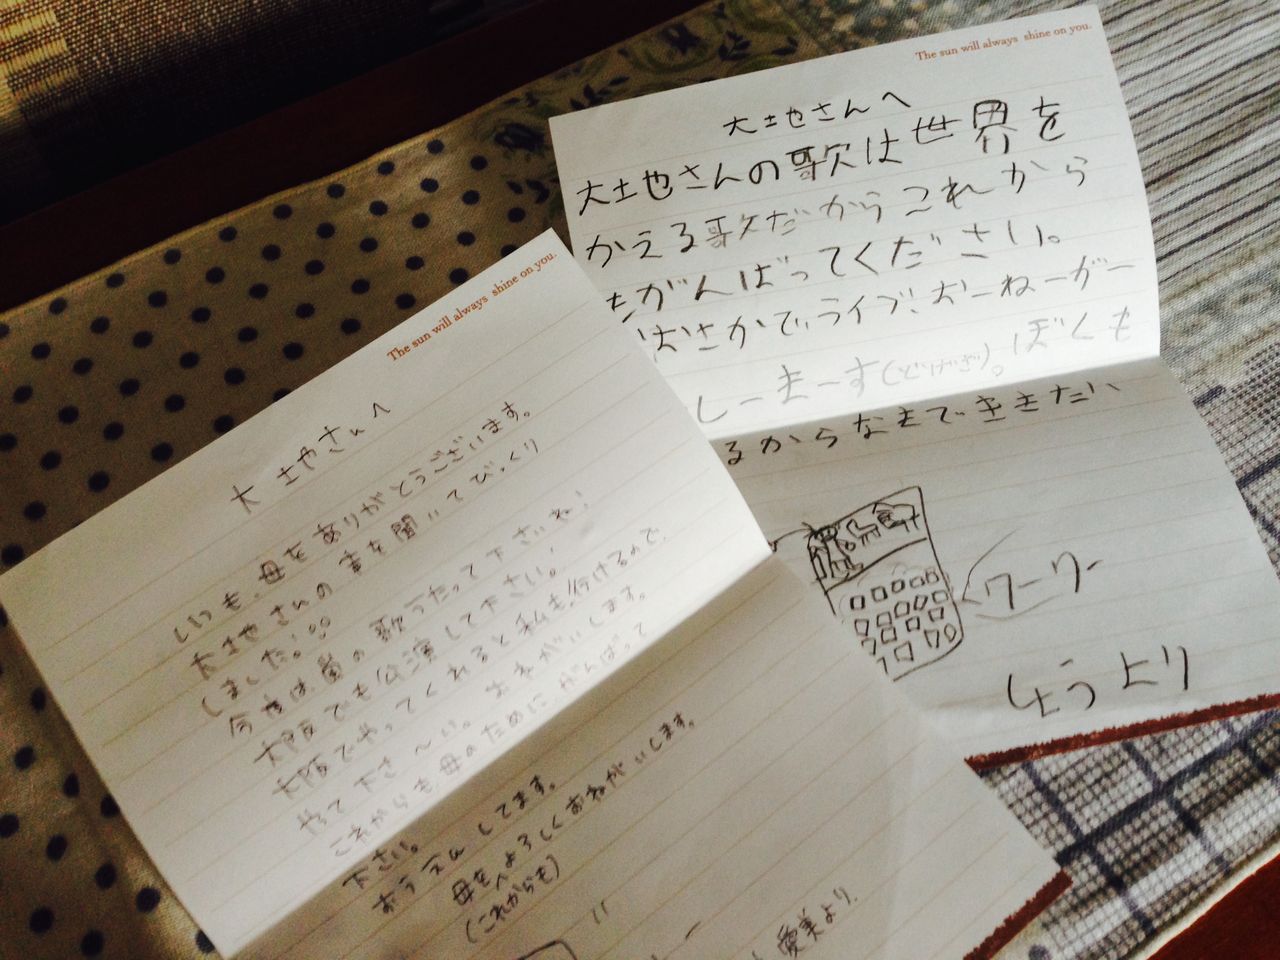 The sun will always shine on you.
大土也さんへ
いつも、母をありがとうございます。
大土也さんの事を聞いてびっくり
しました。
今度は、蛍の歌うたって下さいね!
大阪でも公演して下さい!
大阪でやってくれると私も行けるので、
やって下さ〜い。おねがいします。
これからも、母のために、がんばって
下さい。
おうえんしてます。
母をよろしくおねがいします。
(これからも)
愛美より.
The sun will always shine on you.
大土也さんへ
大土也さんの歌は世界を
かえる歌だからこれから
もがんばってください。
おおさかでライブおーねーがー
しーまーす(どげざ)。ぼくも
るからなまでききたい
ワーワー
しょうより